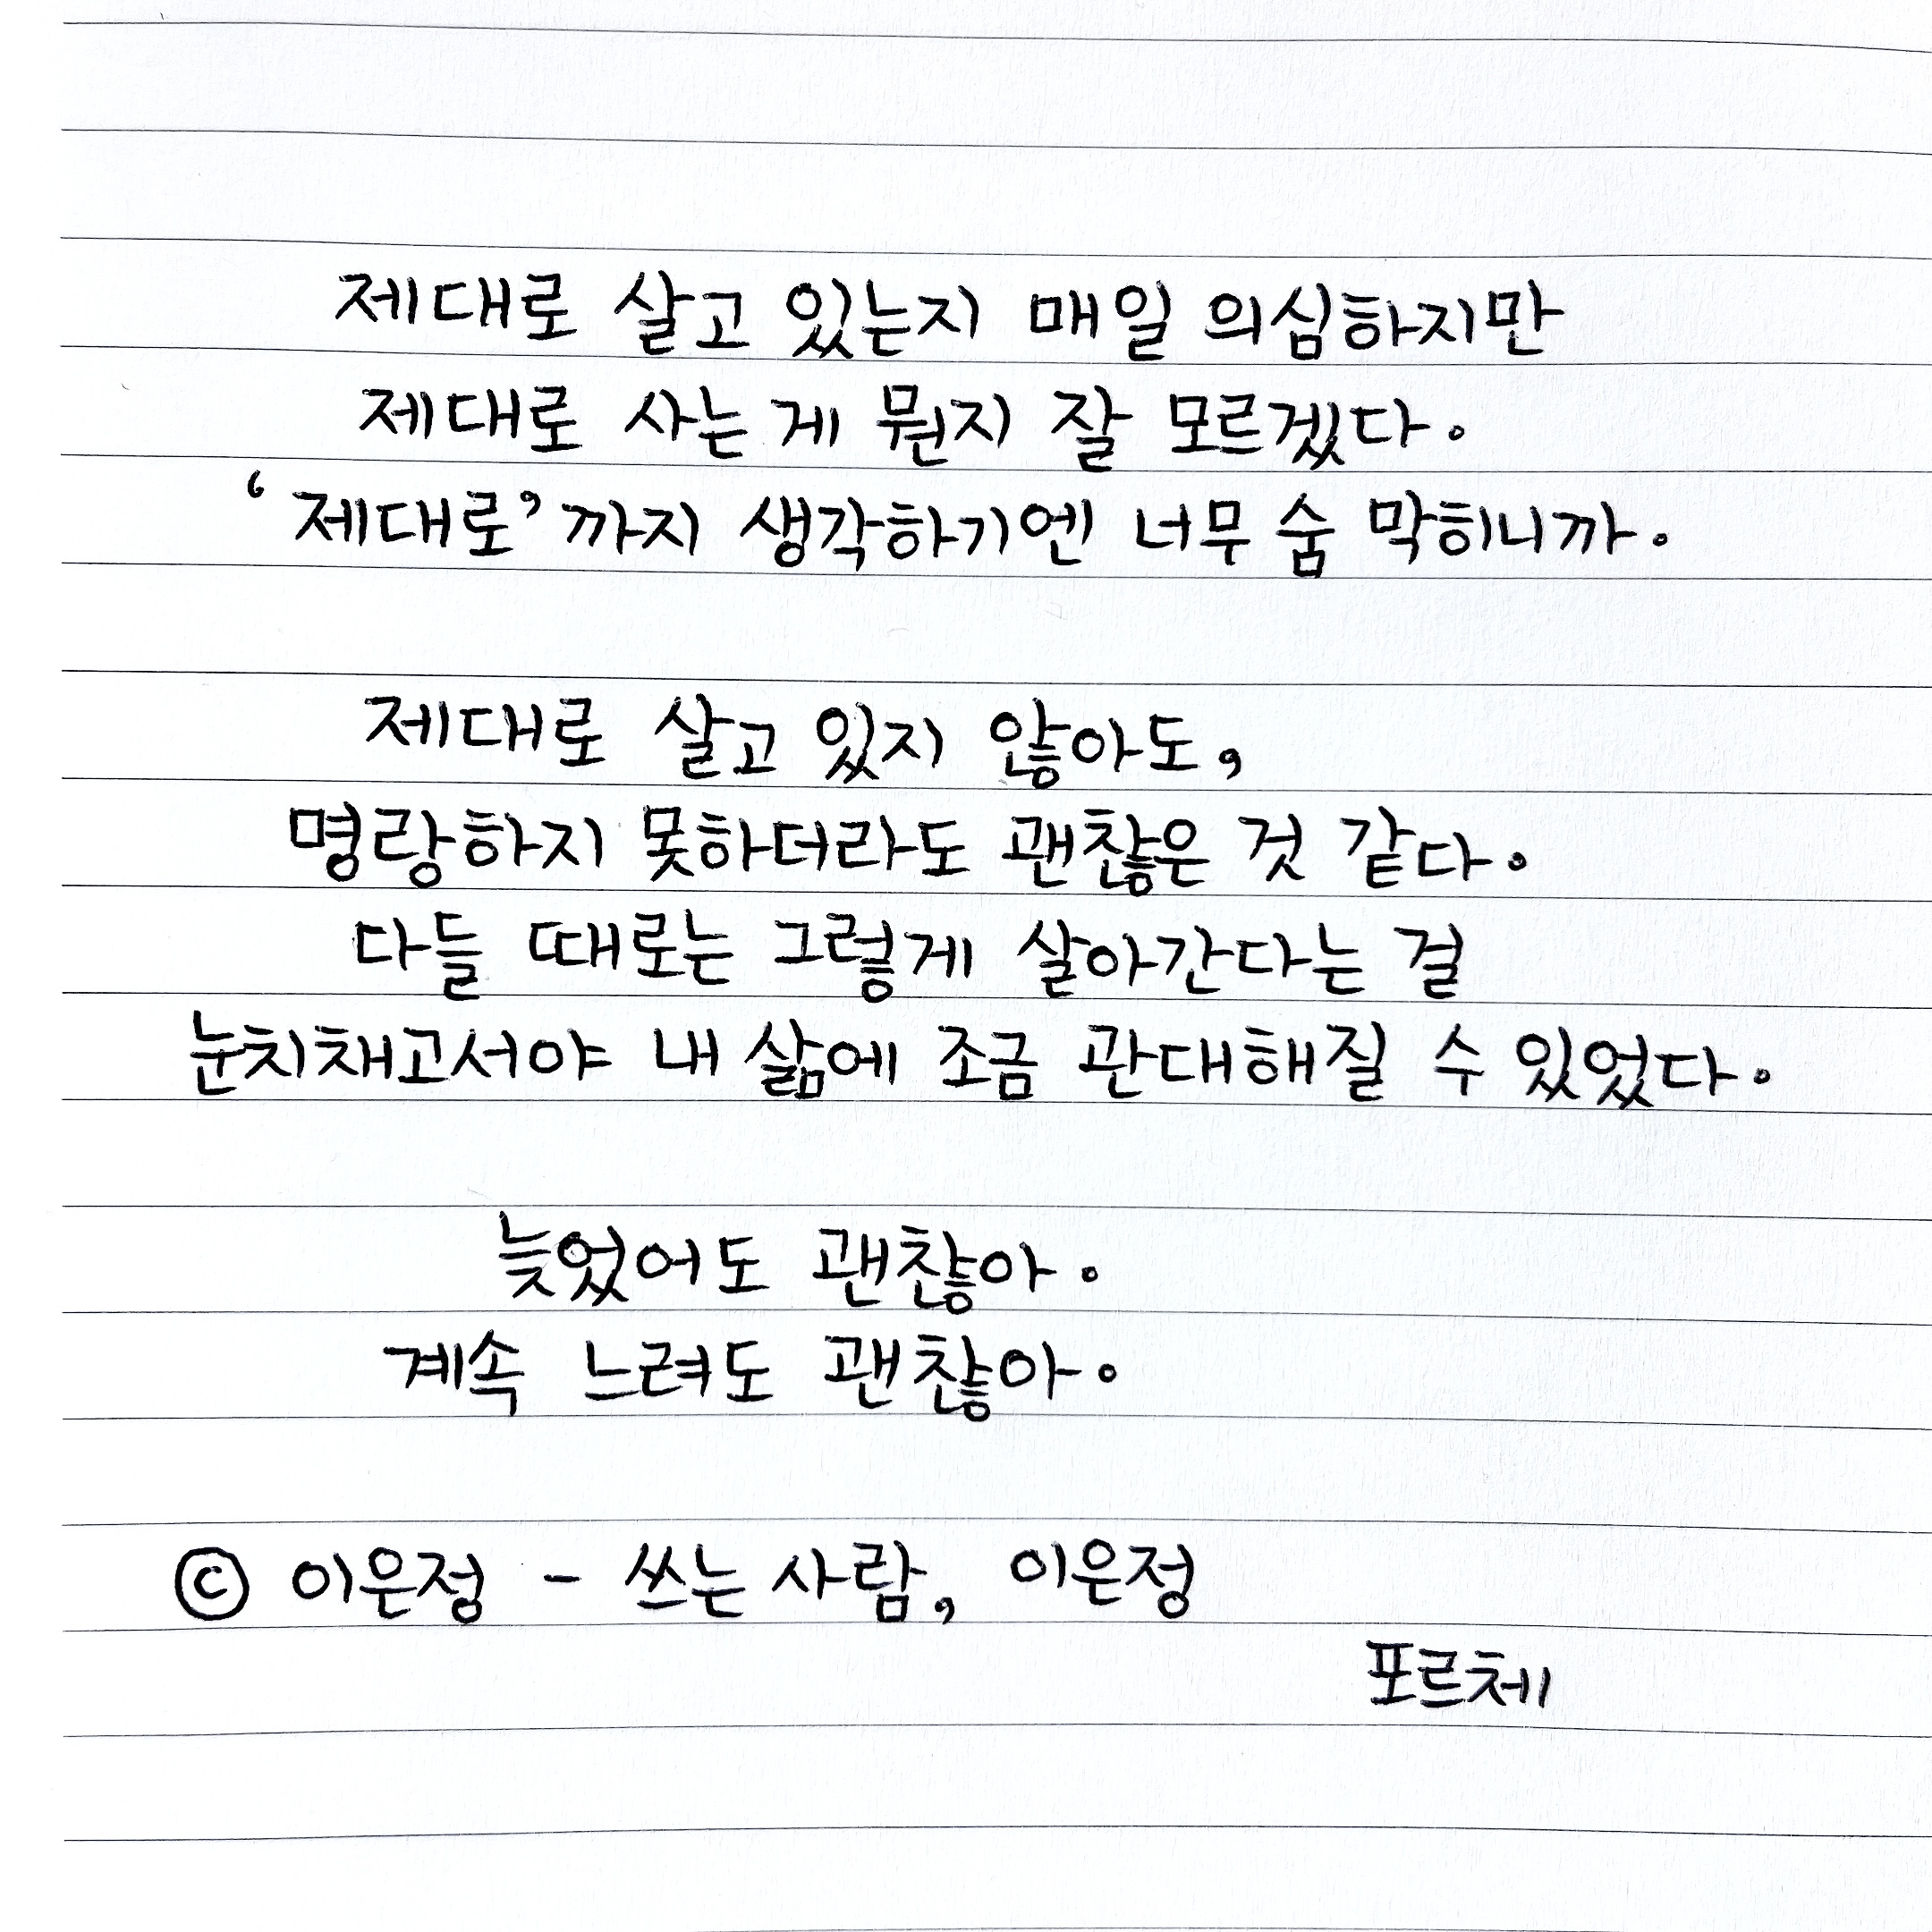 제대로 살고 있는지 매일 의심하지만
제대로 사는 게 뭔지 잘 모르겠다.
‘제대로’까지 생각하기엔 너무 숨 막히니까.
제대로 살고 있지 않아도,
명랑하지 못하더라도 괜찮은 것 같다.
다들 때로는 그렇게 살아간다는 걸
눈치채고서야 내 삶에 조금 관대해질 수 있었다.
늦었어도 괜찮아.
계속 느려도 괜찮아.
© 이은정 - 쓰는 사람, 이은정
포르체